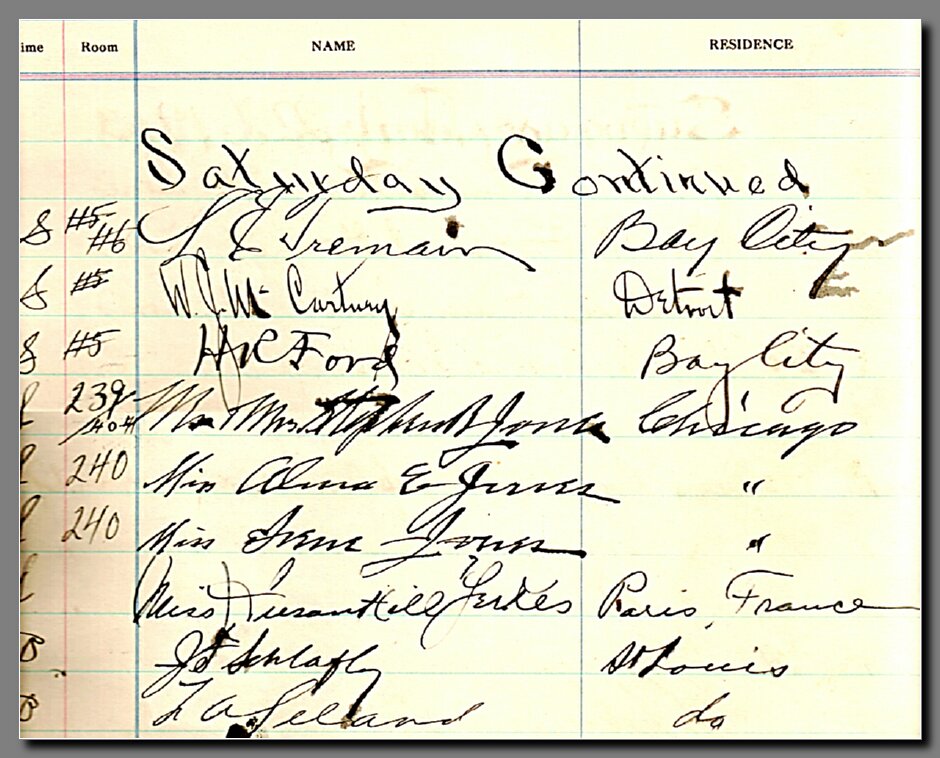 ime Room NAME RESIDENCE
Saturday Continued
S #5 #6 L E Tremain Bay City
S #5 W. J. Mc Cartney Detroit
S #5 H R Ford Bay City
239 Mr Mrs Stephen B Jones Chicago
240 Miss Alma E Jones "
240 Miss Irene Jones "
Miss Yerkes Paris, France
B J F Schlafly St Louis
B L A Leland do